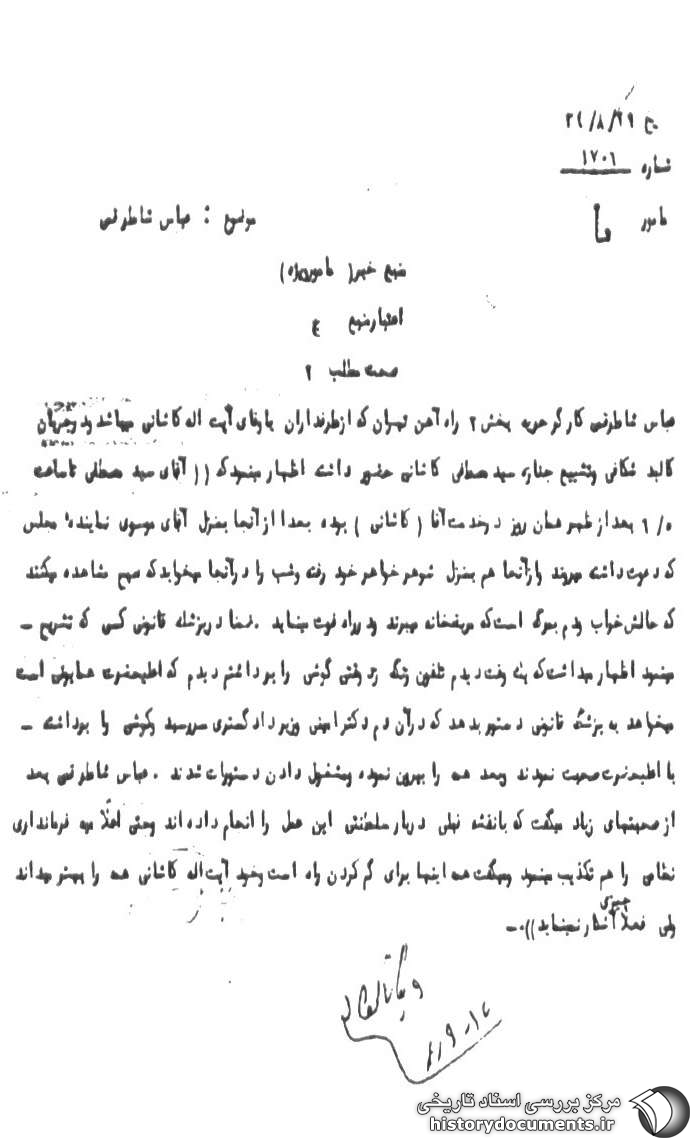 شماره ۱۷۰۶
مامور
موضوع : عباس شاطر قمی
منبع خبر ( مامور ویژه )
اعتبار منبع ع
صحت مطلب ۲
عباس شاطر قمی کارگر حومه بخش ۲ راه آهن تهران که از طرفداران باوفای آیت اله کاشانی میباشد ودر جریان
کالبد شکافی وتشییع جنازه سید مصطفی کاشانی حضور داشته اظهار مینمود که (( آقای سید مصطفی تا ساعت
بعد از ظهر همان روز در خدمت آقا ( کاشانی ) بوده بعدا از آنجا بمنزل آقای موسوی نماینده مجلس
که دعوت داشته میروند واز آنجا هم بمنزل شوهر خواهر خود رفته وشب را در آنجا میخوابد که صبح مشاهده میکنند
که حالش خراب ودم مرگ است که مریضخانه میبرند ودر راه فوت مینماید . ضمنا در پزشک قانونی کسی که تشریح ـ
مینمود اظهار میداشت که یک وقت دیدم تلفون زنگ زد وقتی گوشی را برداشتم دیدم که اعلیحضرت همایونی است
میخواهد به پزشک قانونی دستور بدهد که در آن دم دکتر امینی وزیر دادگستری سررسید وگوشی را برداشته ـ
با اعلیحضرت صحبت نمودند وبعد همه را بیرون نموده ومشغول دادن دستورات شدند . عباس شاطر قمی بعد
از صحبتهای زیاد میگفت که بانقشه قبلی دربار سلطنتی این عمل را انجام داده اند وحتی اعلامیه فرمانداری
نظامی را هم تکذیب مینمود ومیگفت همه اینها برای گم کردن راه است وخود آیت اله کاشانی همه را بهتر میداند
ولی فعلا چیزی آشکار نمینماید )) ۰ـ
مرکز بررسی اسناد تاریخی
historydocuments.ir